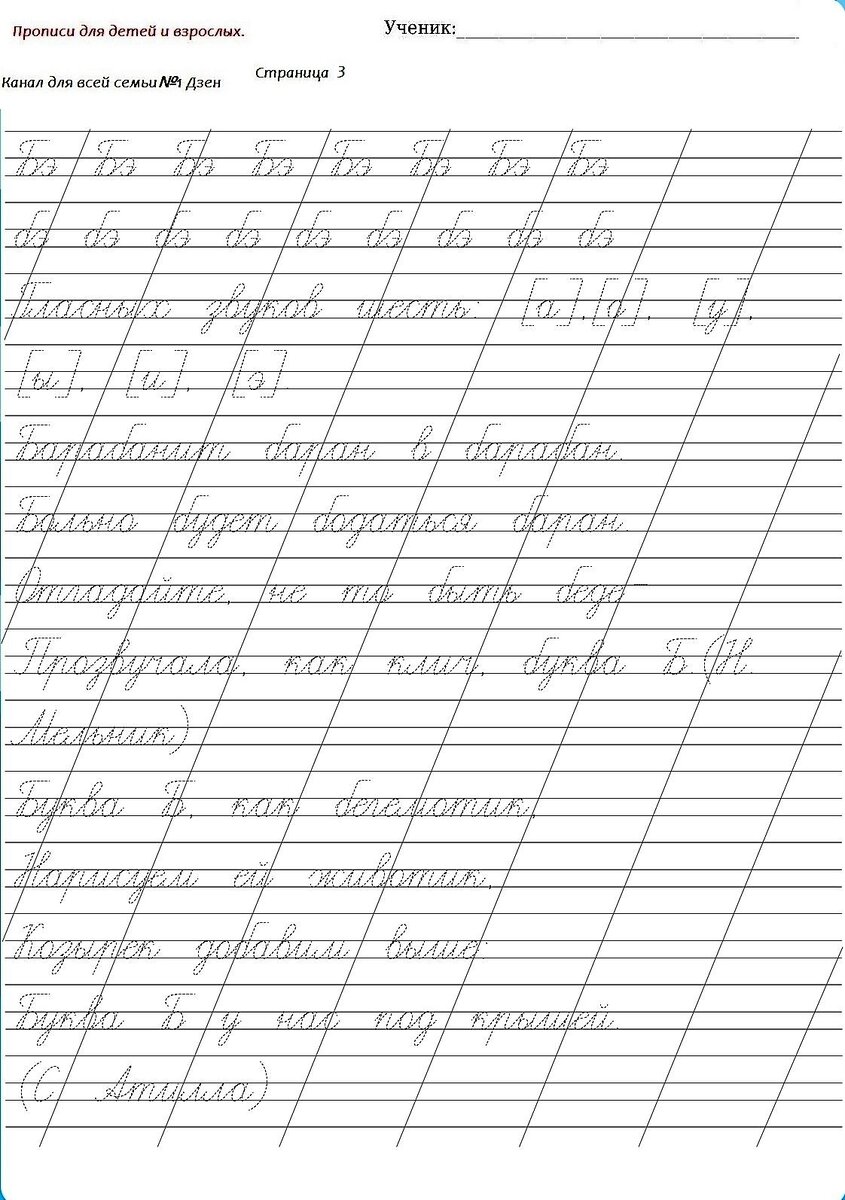 Прописи для детей и взрослых.
Ученик:
Канал для всей семьи №1 Дзен
Страница 3
Бэ Бэ Бэ Бэ Бэ Бэ Бэ Бэ
бэ бэ бэ бэ бэ бэ бэ бэ бэ
Гласных звуков шесть: [а],[о], [у],
[ы], [и], [э].
Барабанит баран в барабан.
Больно будет бодаться баран.
Отгадайте, не то быть беде–
Прозвучала, как клич, буква Б.(Н.
Мельник)
Буква Б, как бегемотик,
Нарисуем ей животик,
Козырек добавим выше:
Буква Б у нас под крышей.
(С Атилла)